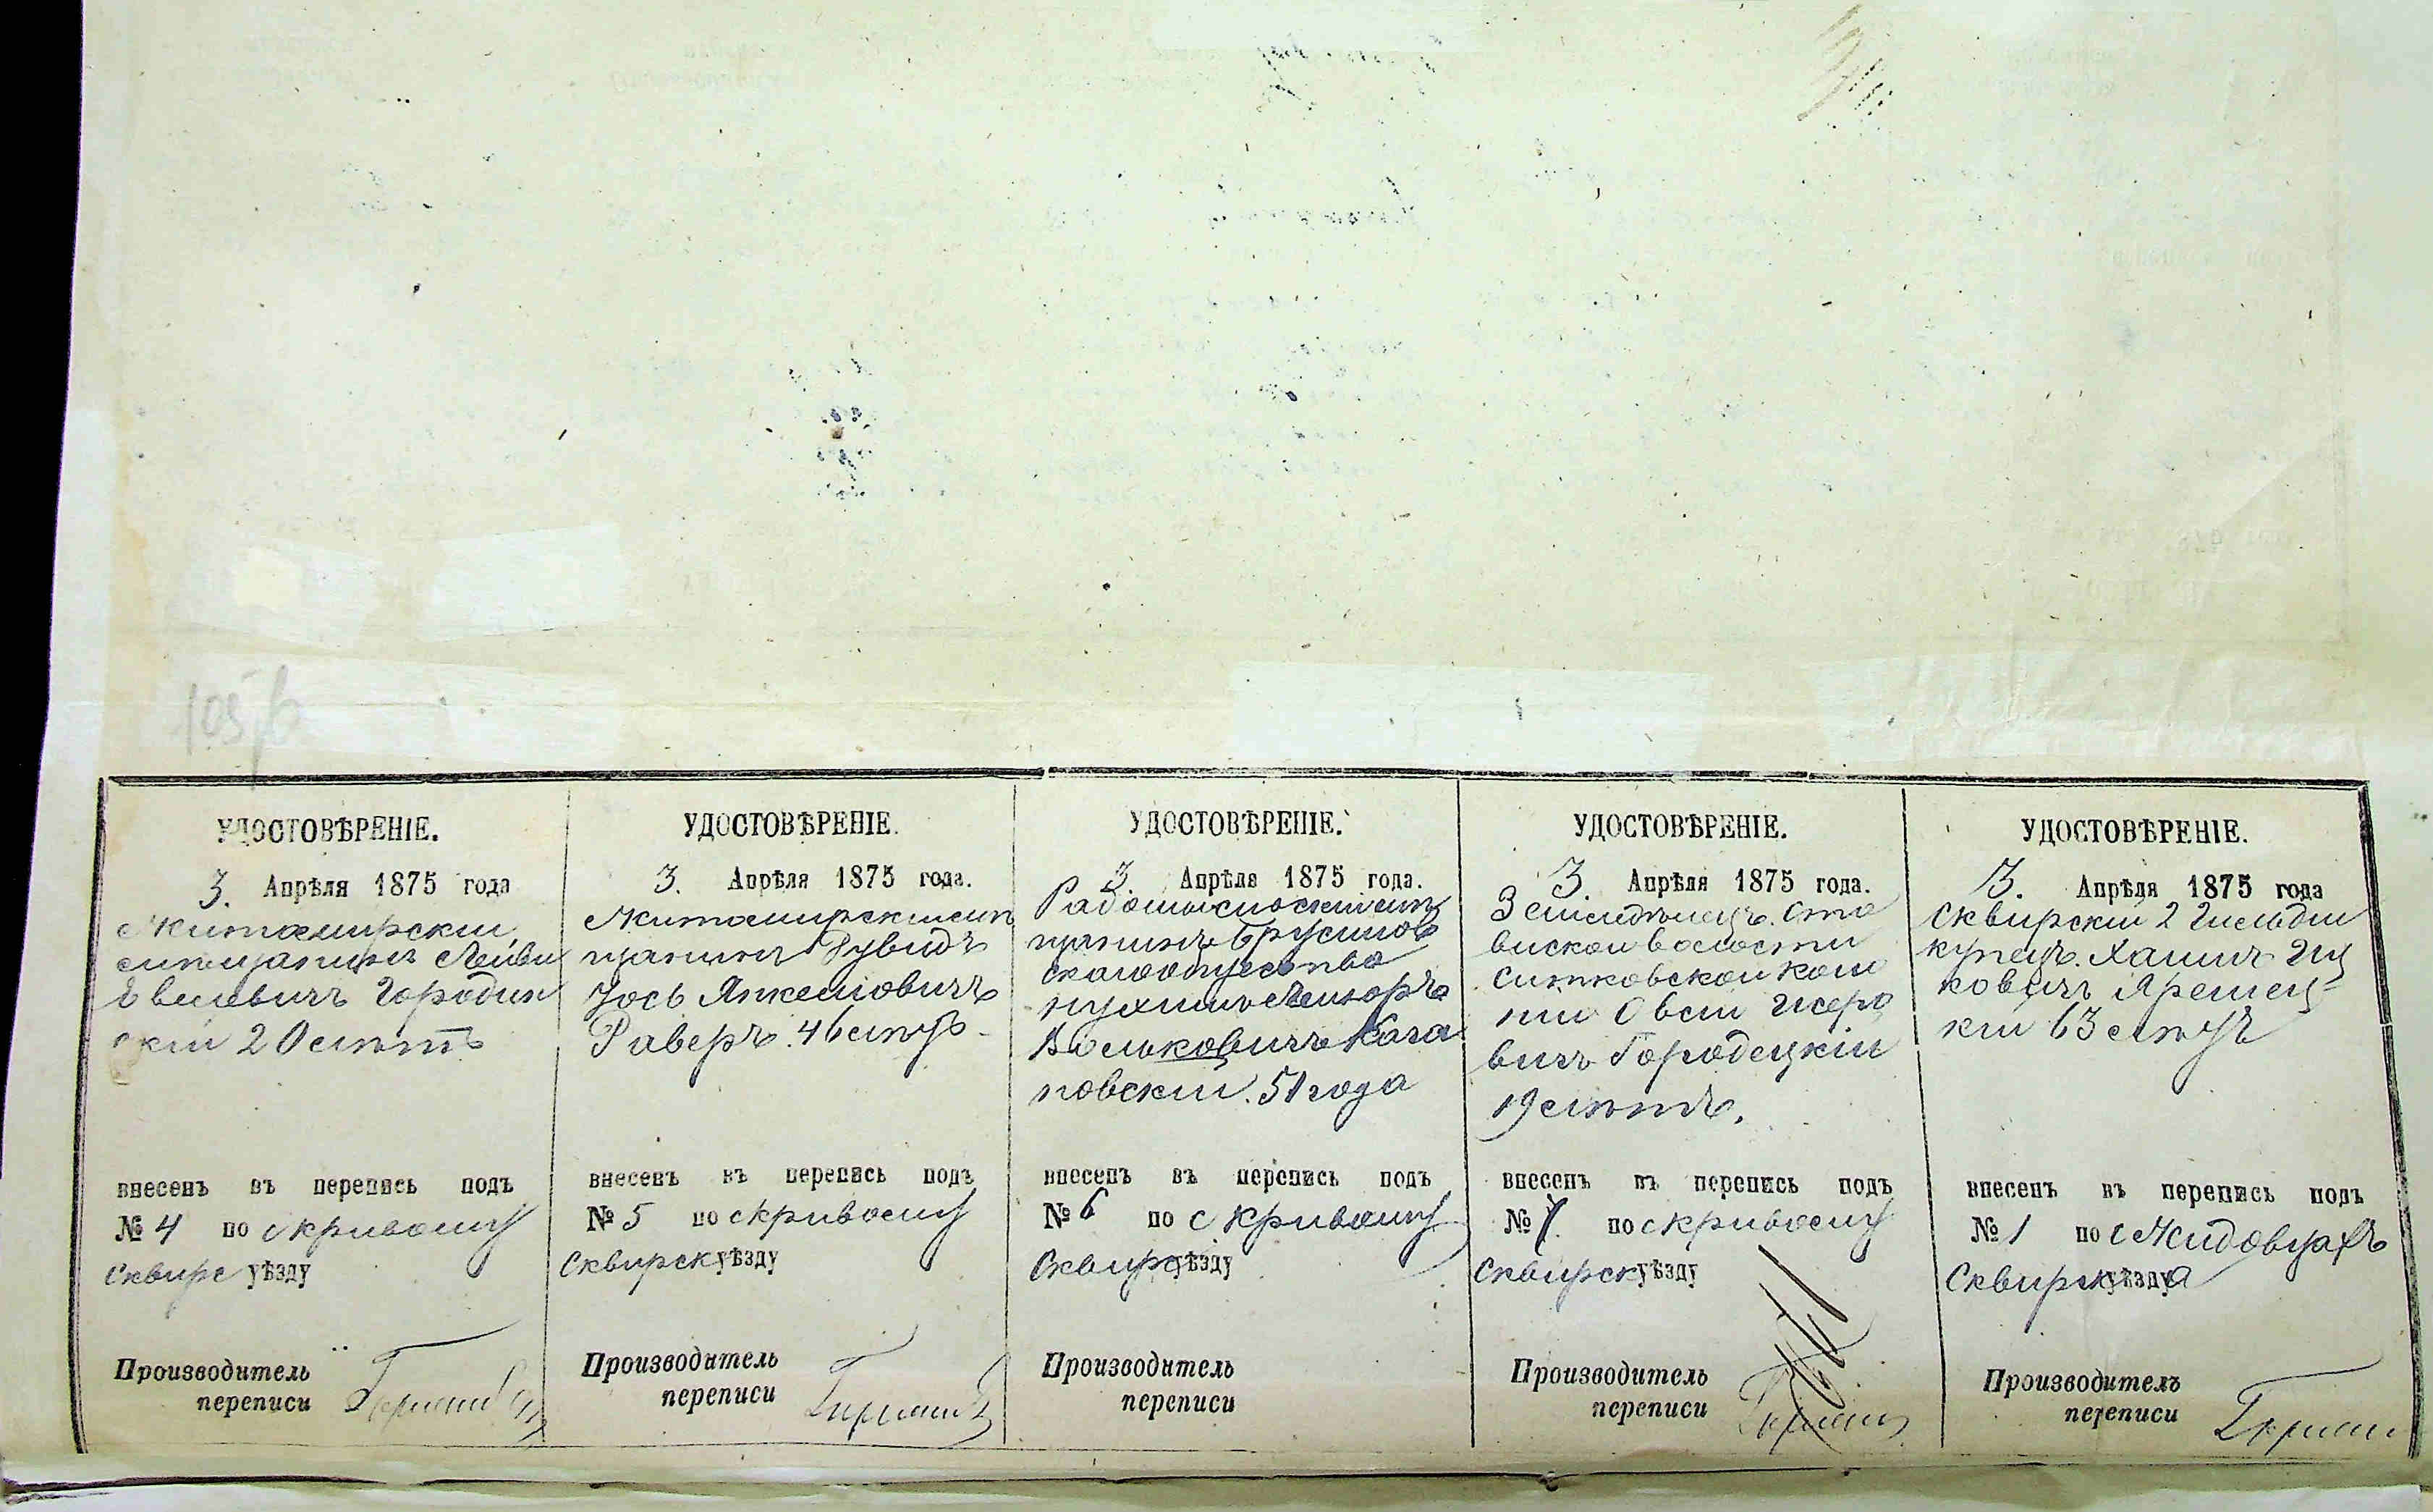 105/b
УДОСТОВѢРЕНІЕ.
3. Апрѣля 1875 года
Житомирскій
мѣщанинъ Лейви
Евелевичъ Городин
скій 20 лѣтъ
внесенъ въ перепись подъ
№ 4 по с Кривому
Сквирс уѣзду
Производитель
переписи
УДОСТОВѢРЕНІЕ.
3. Апрѣля 1875 года.
Житомирскій мѣ
щанинъ Рувидъ
Іось Янкеліовичъ
Раверъ. 46 лѣтъ
внесенъ въ перепись подъ
№ 5 по с Кривому
Сквирск уѣзду
Производитель
переписи
УДОСТОВѢРЕНІЕ.
3. Апрѣля 1875 года.
Радомысльскій мѣ
щанинъ Брусилов
скаго общества
Вольковичъ Кага
новскій. 51 года
внесенъ въ перепись подъ
№ 6 по с Кривому
Сквирс уѣзду
Производитель
переписи
УДОСТОВѢРЕНІЕ.
3. Апрѣля 1875 года.
Земледѣлецъ. Ста
виской волости
Ситковской коло
ніи Овсей
вичъ Городецкій
19 лѣтъ.
внесенъ въ перепись подъ
№ 7. по с Кривому
Сквирск уѣзду
Производитель
переписи
УДОСТОВѢРЕНІЕ.
3. Апрѣля 1875 года
Сквирскій 2 Гильдіи
купецъ. Хаимъ Иц
ковичъ Яремец=
кій 63 лѣтъ
внесенъ въ перепись подъ
№ 1 по с Жидовцахъ
Сквирск уѣзду а
Производитель
переписи